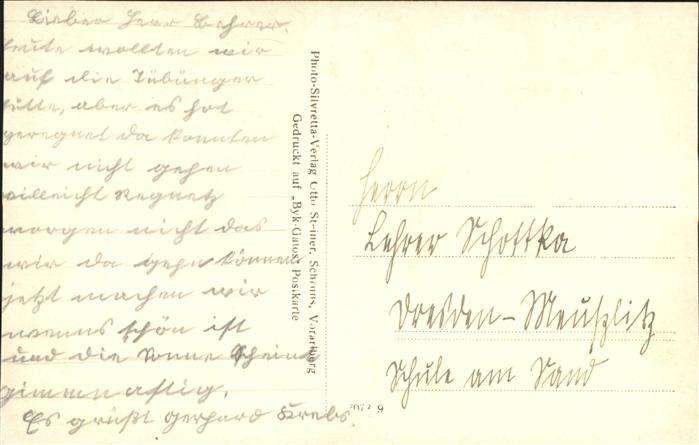 Lieber Herr Lehrer.
heute wollten wir
auf die Tübinger
hütte, aber es hat
geregnet da konnten
wir nicht gehen
villeicht Regnetz
morgen nicht das
wir da gehn können
jetzt machen wir
wenns schön ist
und die Sonne Scheint
gimmnastig.
Es grüßt Gerhard Krebs.
Photo-Silvretta-Verlag Otto Steiner, Schruns, Vorarlberg
Gedruckt auf „Byk-Gatos“ Postkarte
Herrn
Lehrer Schottka
Dresden-Meußlitz
Schule am Sand
9